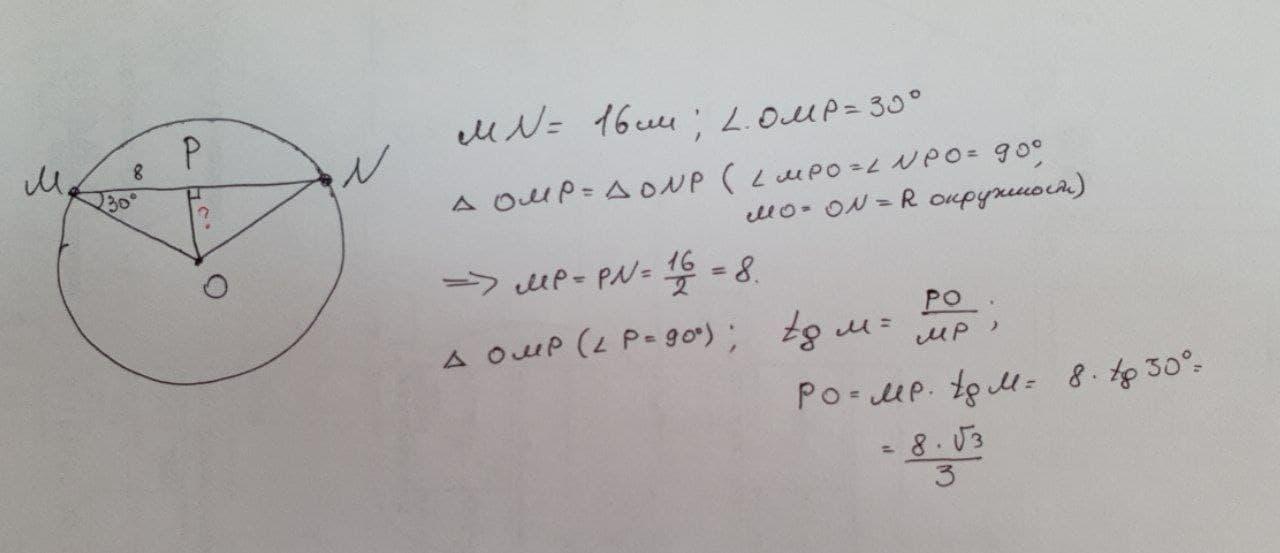 M
8
P
N
30°
?
O
MN = 16см; ∠OMP = 30°
△ OMP = △ ONP (∠MPO = ∠NPO = 90°,
MO = ON = R окружности)
=> MP = PN = 16/2 = 8.
△ OMP (∠P = 90°); tg M = PO/MP;
PO = MP · tg M = 8 · tg 30° =
= 8 · √3/3